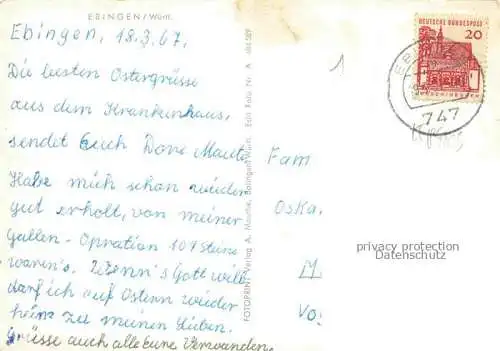 EBINGEN/Württ.
Ebingen, 18.3.67.
Die besten Ostergrüsse
aus dem Krankenhaus,
sendet Euch Dore Maute
Habe mich schon wieder
gut erholt, von meiner
Gallen-Opration 101 Steine
waren's. Wenn's Gott will
darf ich auf Ostern wieder
heim zu meinen Lieben.
Grüsse auch alle Eure Verwanden.
FOTOPRINT Verlag A. Mauthe, Balingen Württ. Edit Foto Nr. A
1
DEUTSCHE BUNDESPOST
20
747
Fam
Oska
M
Vo
privacy protection
Datenschutz